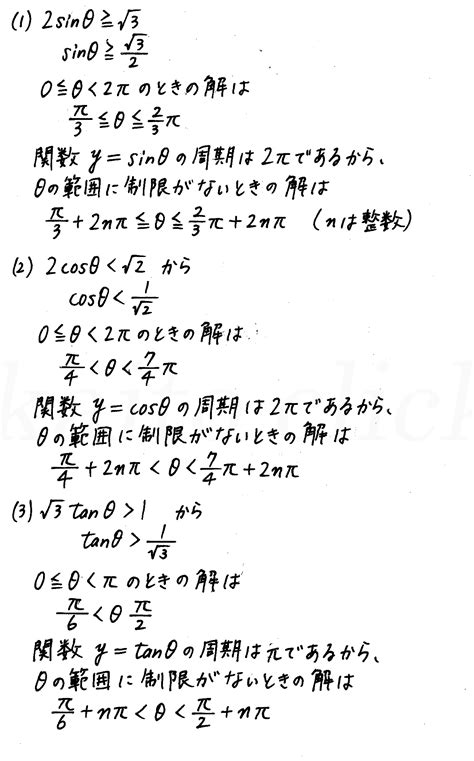 (1) 2sinθ≧√3
sinθ≧√3/2
0≦θ<2πのときの解は
π/3≦θ≦2/3π
関数 y=sinθの周期は2πであるから、
θの範囲に制限がないときの解は
π/3+2nπ≦θ≦2/3π+2nπ (nは整数)
(2) 2cosθ<√2 から
cosθ<1/√2
0≦θ<2πのときの解は
π/4<θ<7/4π
関数 y=cosθの周期は2πであるから、
θの範囲に制限がないときの解は
π/4+2nπ<θ<7/4π+2nπ
(3) √3 tanθ>1 から
tanθ>1/√3
0≦θ<πのときの解は
π/6<θ π/2
関数 y=tanθの周期はπであるから、
θの範囲に制限がないときの解は
π/6+nπ<θ<π/2+nπ